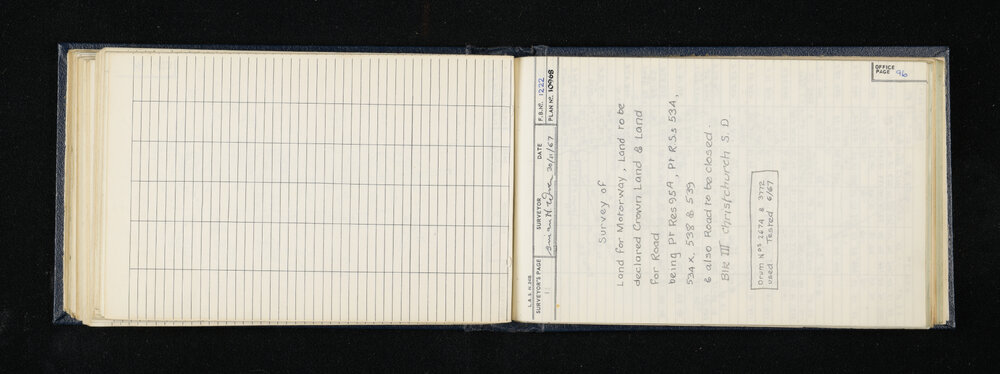 OFFICE PAGE 96
L. & S. H.24B
SURVEYOR'S PAGE 1
SURVEYOR
DATE 20/11/67
F.B. No. 1222
PLAN No. 10908
Survey of
Land for Motorway, Land to be
declared Crown Land & Land
for Road
being Pt Res 95A, Pt R.S.s 53A,
53AX, 538 & 539
& also Road to be closed.
Blk III Christchurch S.D
Drum Nos 267A & 3772
used. Tested 6/67